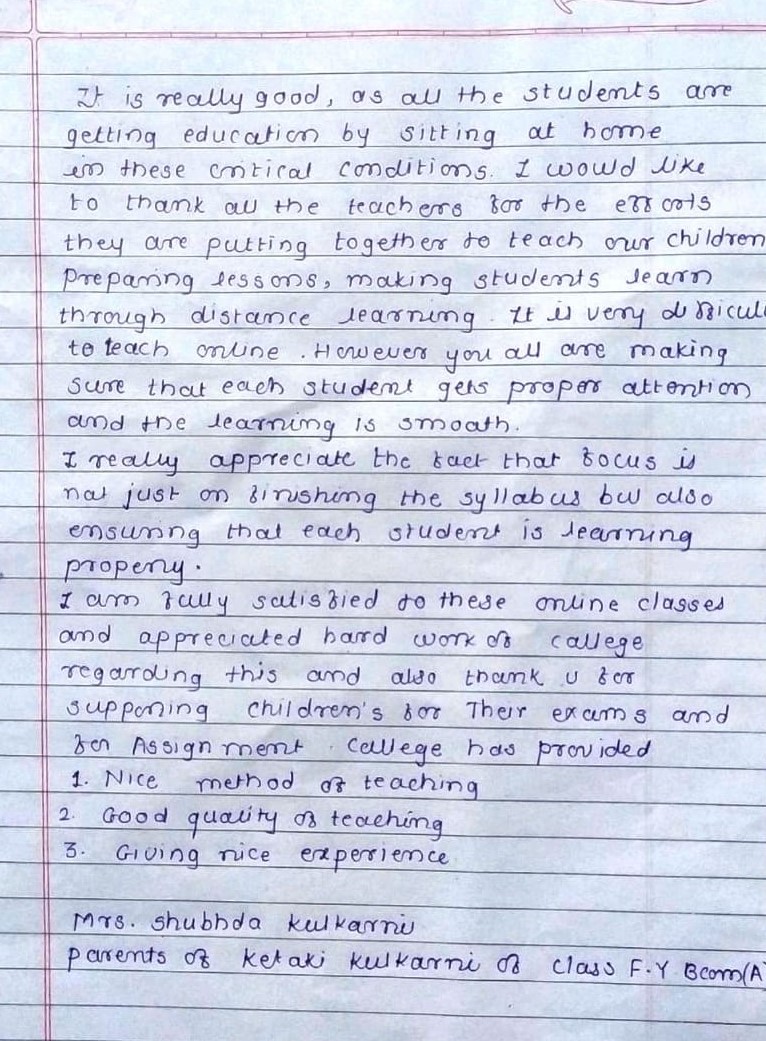 It is really good, as all the students are
getting education by sitting at home
in these critical conditions. I would like
to thank all the teachers for the efforts
they are putting together to teach our children
preparing lessons, making students learn
through distance learning. It is very difficul
to teach online. However you all are making
sure that each student gets proper attention
and the learning is smooth.
I really appreciate the fact that focus is
not just on finishing the syllabus but also
ensuring that each student is learning
properly.
I am fully satisfied to these online classes
and appreciated hard work of college
regarding this and also thank u for
supporting children's for Their exams and
for Assignment. College has provided
1. Nice method of teaching
2. Good quality of teaching
3. Giving nice experience
Mrs. Shubhda Kulkarni
parents of Ketaki Kulkarni of class F.Y. Bcom(A